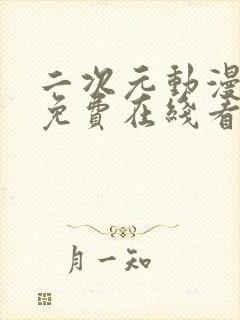 二次元動漫
免費在綫看
月一知